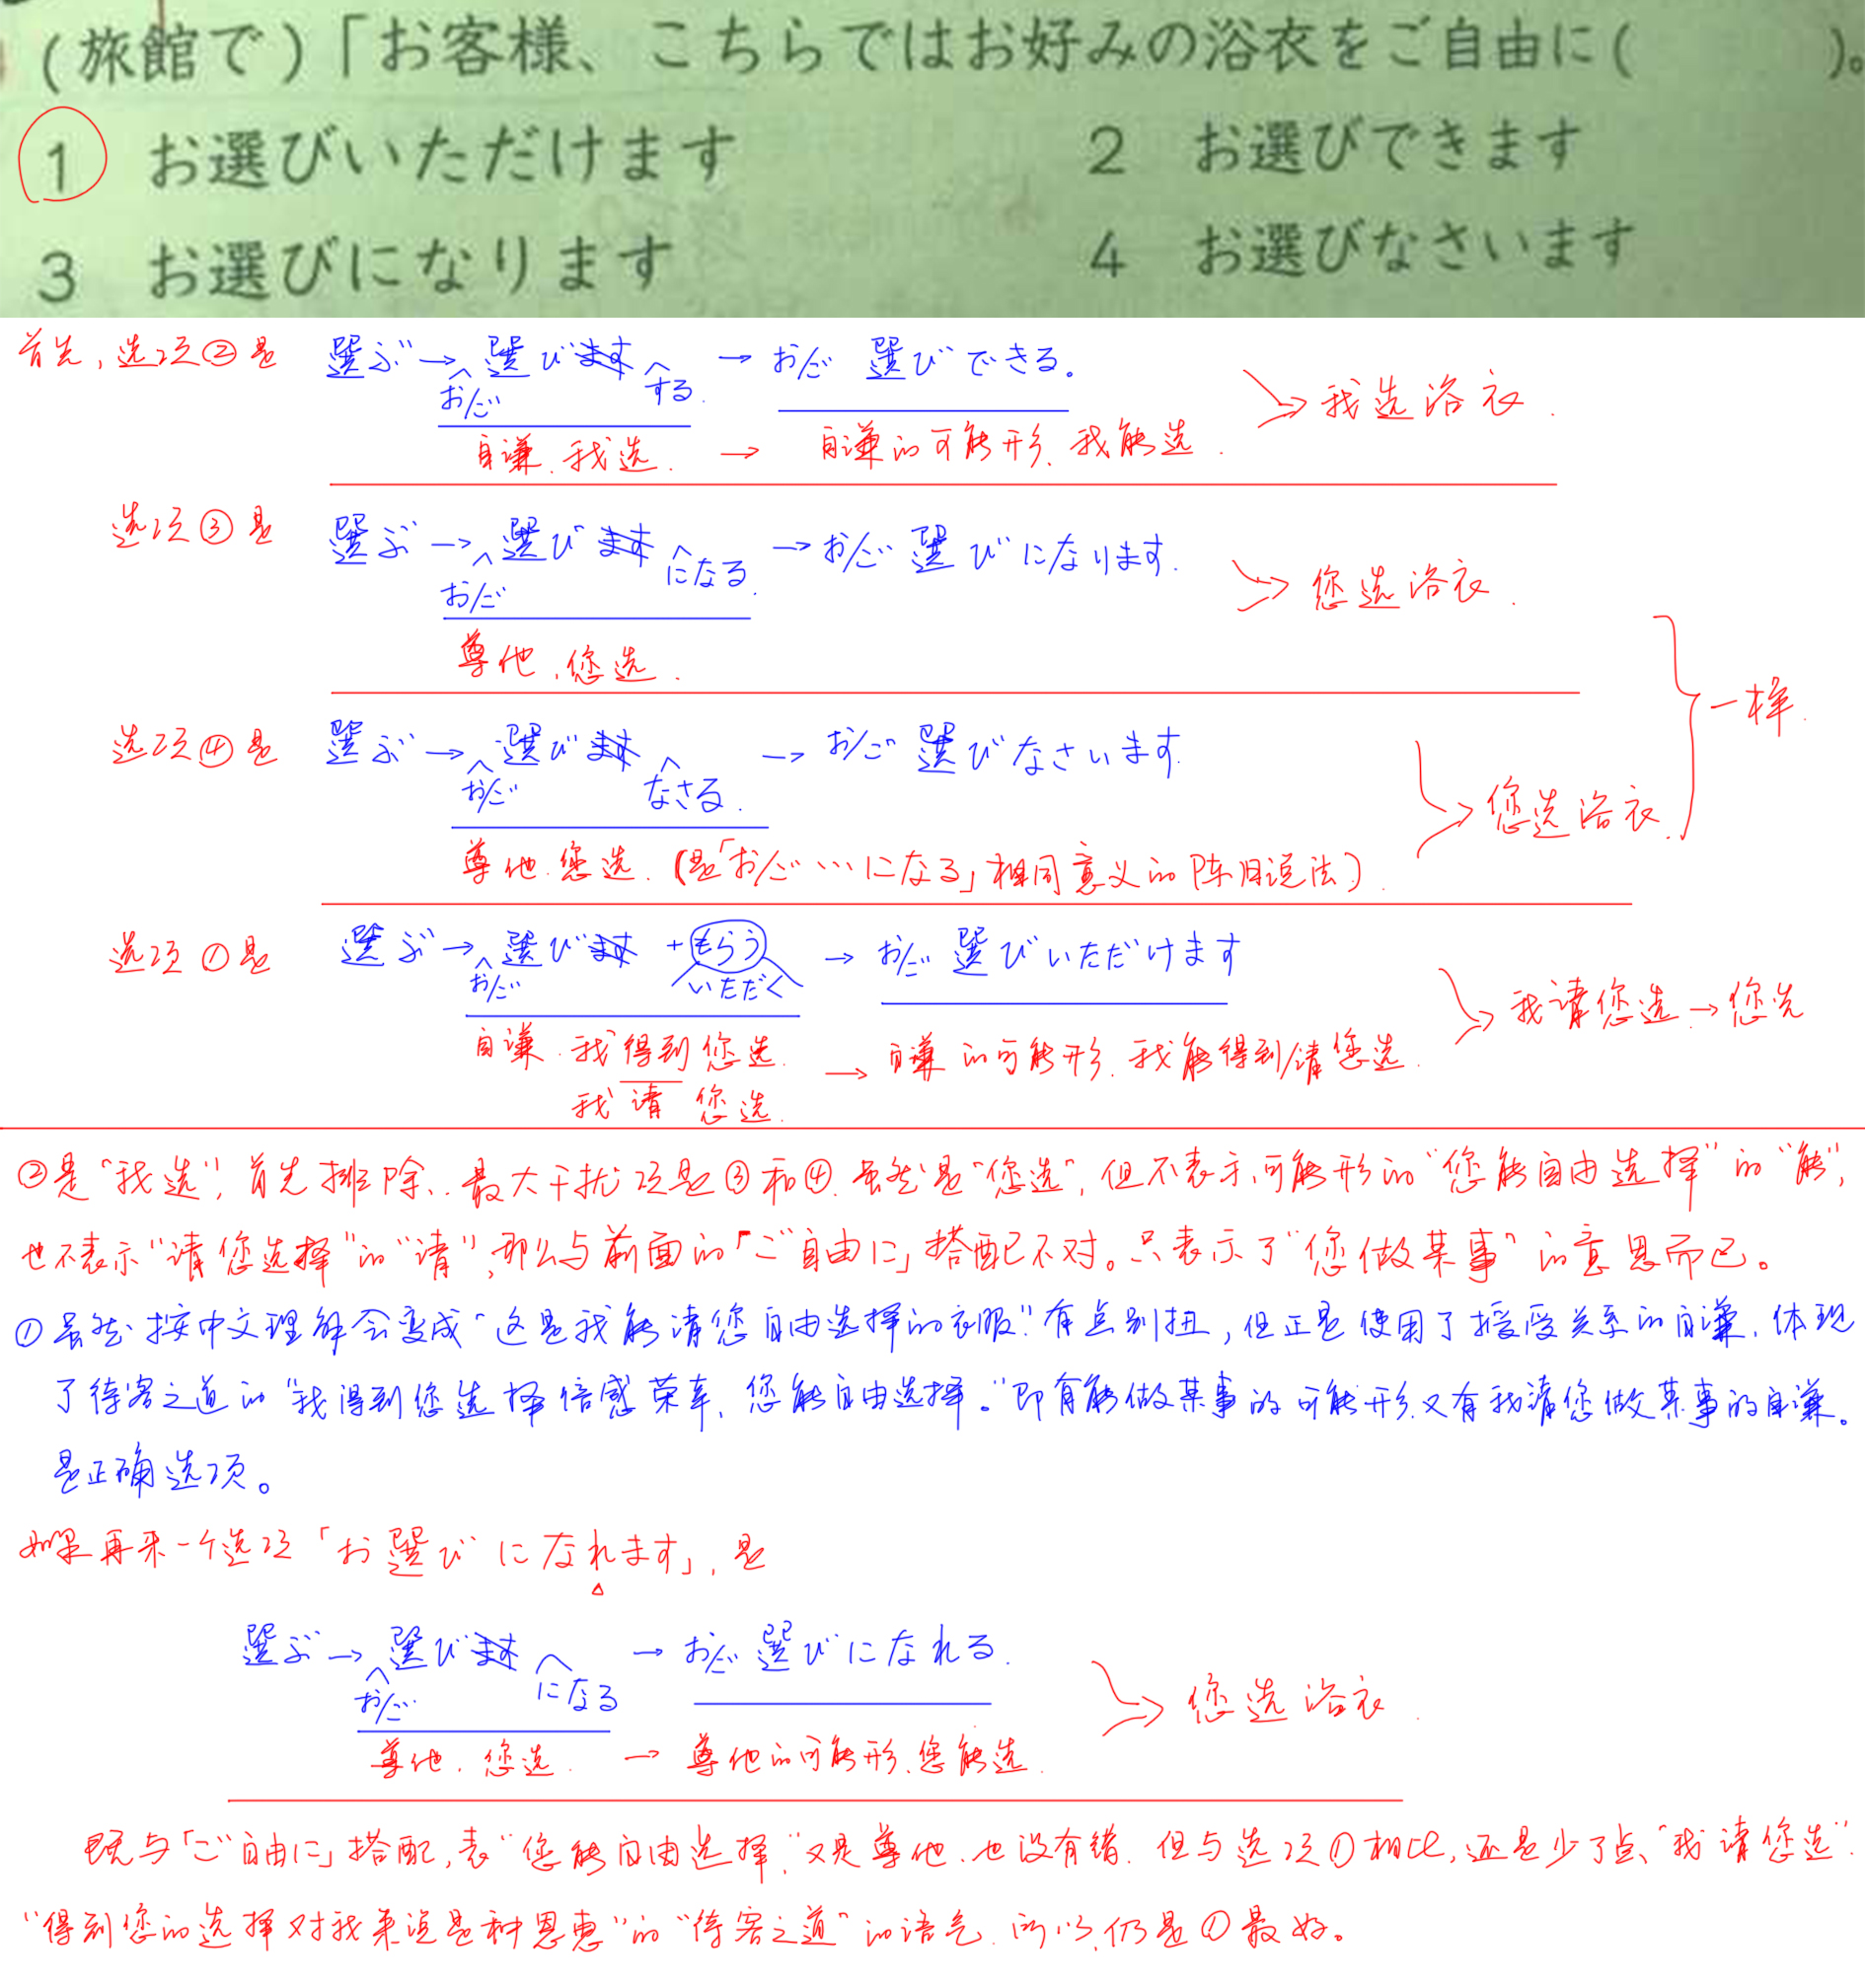 (旅館で)「お客様、こちらではお好みの浴衣をご自由に(　　　)。
1 お選びいただけます　2 お選びできます
3 お選びになります　4 お選びなさいます
首先,选项②是 選ぶ→選びます → お/ご 選びできる。
お/ご する.
我选浴衣.
自谦.我选. → 自谦的可能形.我能选.
选项③是 選ぶ→選びます →お/ご 選びになります.
お/ご になる.
您选浴衣.
尊他,您选.
一样.
选项④是 選ぶ→選びます → お/ご 選びなさいます.
お/ご なさる.
您选浴衣.
尊他.您选.(是「お/ご…になる」相同意义的陈旧说法).
选项①是 選ぶ→選びます +もらう → お/ご 選びいただけます
お/ご いただく
我请您选→您先
自谦.我得到您选. → 自谦的可能形.我能得到/请您选.
我请您选.
②是“我选”,首先排除..最大干扰项是③和④.虽然是“您选”,但不表示可能形的“您能自由选择”的“能”,
也不表示“请您选择”的“请”,那么与前面的「ご自由に」搭配不对。只表示了“您做某事”的意思而已。
①虽然按中文理解会变成“这是我能请您自由选择的衣服.”有点别扭,但正是使用了授受关系的自谦.体现
了待客之道的“我得到您选择倍感荣幸,您能自由选择。”即有能做某事的可能形又有我请您做某事的自谦。
是正确选项。
如果再来一个选项「お選びになれます」,是
選ぶ→選びます → お/ご 選びになれる.
お/ご になる
您选浴衣.
尊他.您选. → 尊他的可能形.您能选.
既与「ご自由に」搭配,表“您能自由选择,”又是尊他.也没有错.但与选项①相比,还是少了点“我请您选”.
“得到您的选择对我来说是种恩惠”的“待客之道”的语气.所以,仍是①最好。